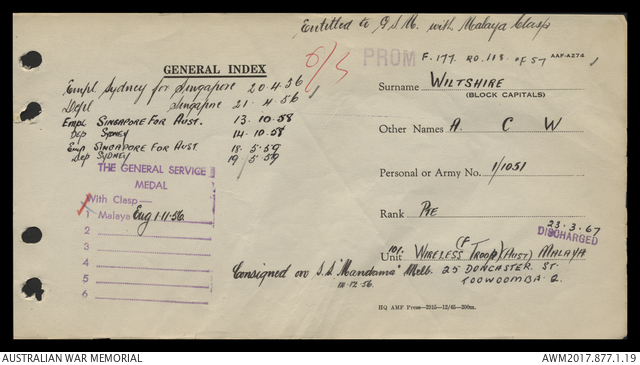 Entitled to G.S.M. with Malaya Clasp
PROM F.177. RO.118. OF 57 AAF-A274
GENERAL INDEX
Surname WILTSHIRE
(BLOCK CAPITALS)
Empl Sydney for Singapore 20.4.56
Depl Singapore 21.4.56
Empl SINGAPORE FOR AUST. 13.10.58
Dep SYDNEY 14.10.58
Emp SINGAPORE FOR AUST 18.5.59
Dep SYDNEY 19.5.59
Other Names A. C W
Personal or Army No. 1/1051
THE GENERAL SERVICE
MEDAL
With Clasp—
1 Malaya Eng 1.11.56
2
3
4
5
6
Rank PTE
23.3.67
DISCHARGED
Unit 101. WIRELESS TROOP (AUST) MALAYA
Consigned on S.S "Mandama" Melb. 25 DONCASTER ST.
18.12.56. TOOWOOMBA. Q.
HQ AMF Press—2815—12/45—300m.
AUSTRALIAN WAR MEMORIAL
AWM2017.877.1.19